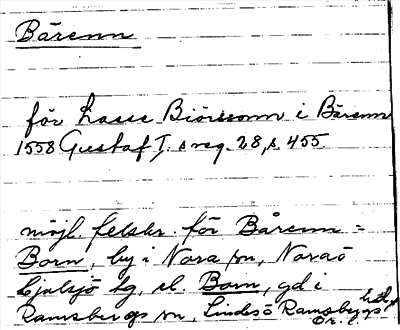 Bärenn
för Lasse Biörssonn i Bärenn
1558 Gustaf I. s reg. 28, s. 455.
möjl. felskr. för Bårenn =
Born, by i Nora sn, Noraö
Hjulsjö bg, el. Born, gd i
Ramsbergs sn, Lindesö Ramsbergs
Ör. l.